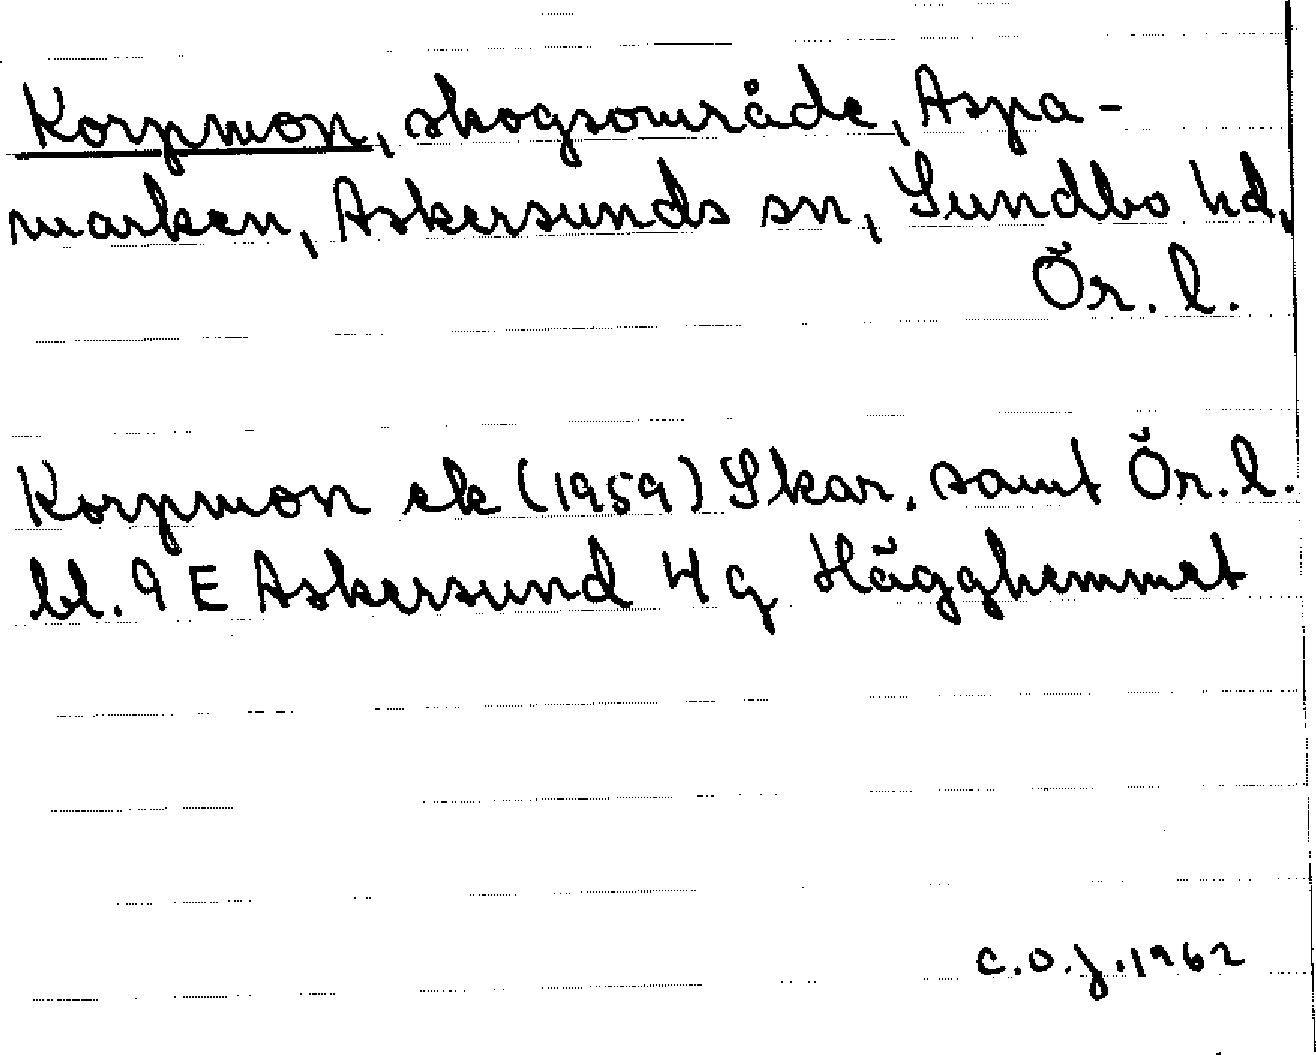 Korpmon, skogsområde, Aspa-
marken, Askersunds sn, Sundbo hd,
Ör. l.
Korpmon ek (1959) Skar. samt Ör. l.
bl. 9 E Askersund 4 g Hägghemmet
C.O.J. 1962